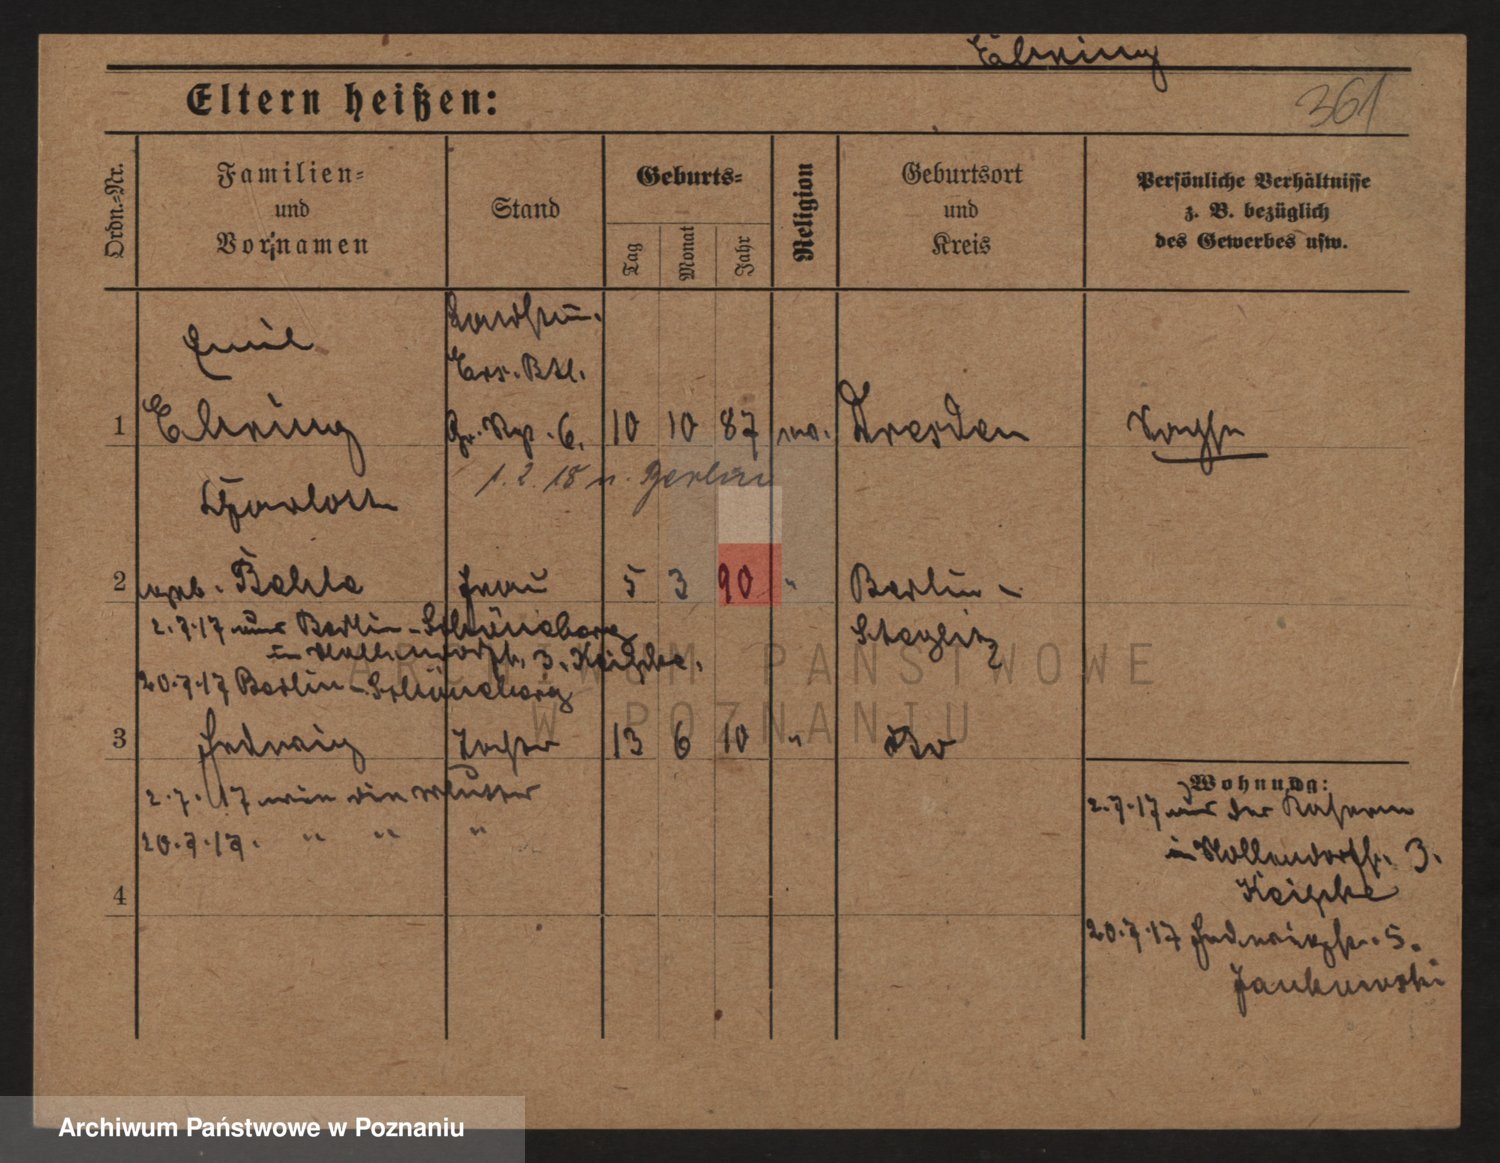 Ehring
361
Eltern heißen:
Ordn.-Nr.
Familien-
und
Vornamen
Stand
Geburts-
Tag
Monat
Jahr
Religion
Geburtsort
und
Kreis
Persönliche Verhältnisse
z. B. bezüglich
des Gewerbes usw.
Emil
Landstu.
Ers. Btl.
1 Ehring 6. 10 10 87 Dresden
1. 2. 18 n. Berlin
Charlotte
2 geb. Frau 5 3 90 " Berlin-
Steglitz
2.7.17 aus Berlin-Schöneberg
in Nollendorfstr. 3.
20.7.17 Berlin-Schöneberg
3 Hedwig Tochter 13 6 10 " dto
2.7.17 wie die Mutter
20.7.17. " " "
4
Wohnung:
2.7.17 aus der Kaserne
in Nollendorfstr. 3.
20.7.17 Hedwigstr. 5.
Jankowski
ARCHIWUM PAŃSTWOWE
W POZNANIU
Archiwum Państwowe w Poznaniu